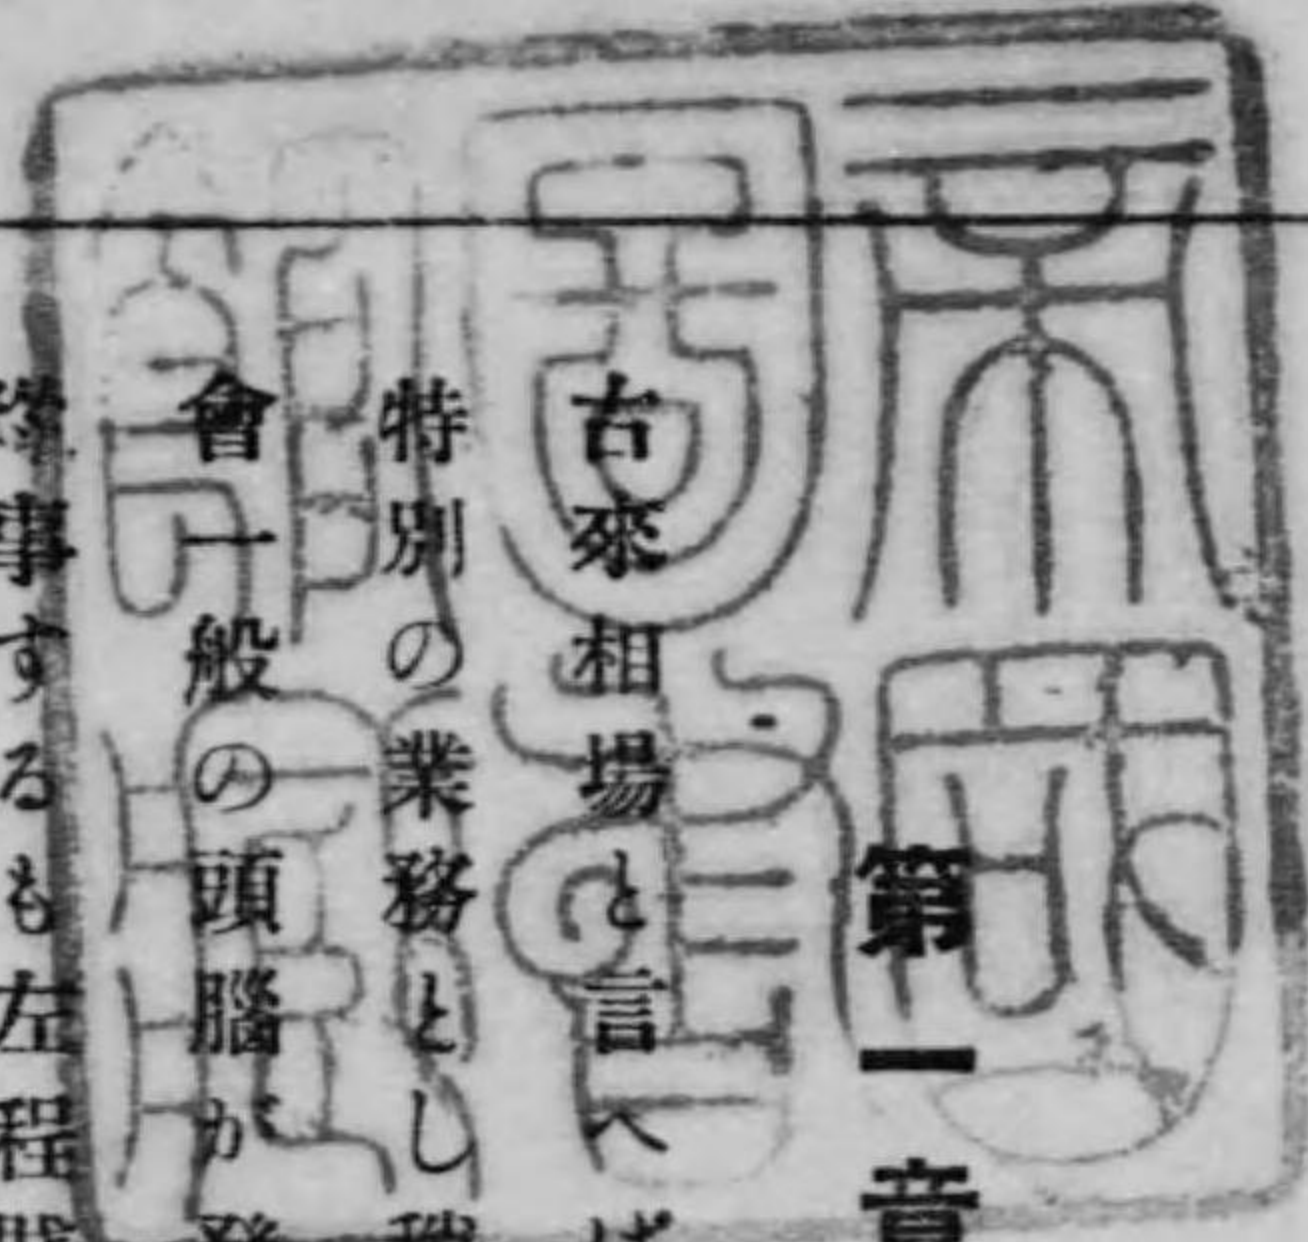 帝國圖書館藏
第一章
古來相場と言へば
特別の業務とし
會一般の頭腦が發
事するも左程